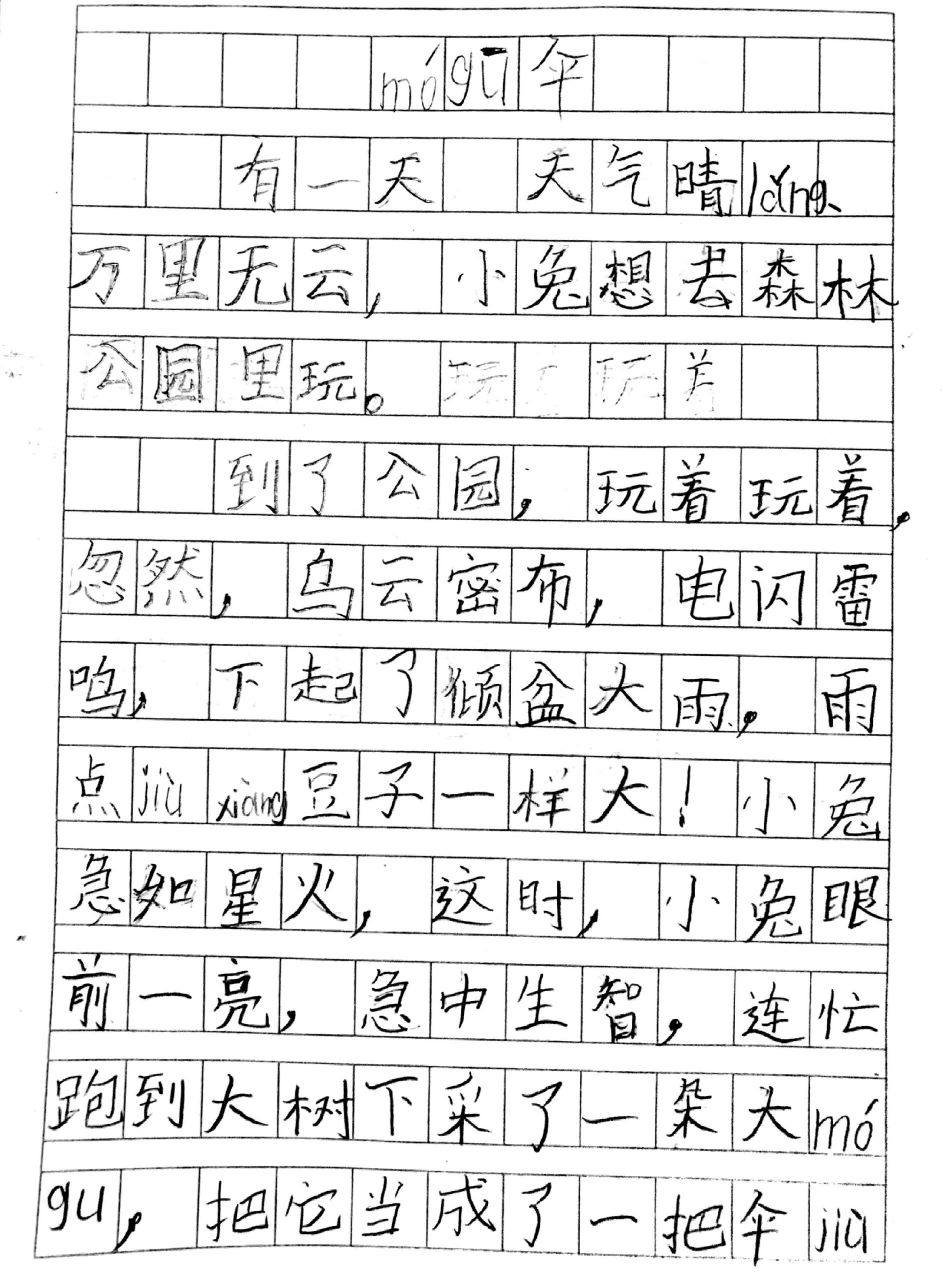 mógū伞
有一天 天气晴lǎng、
万里无云,小兔想去森林
公园里玩。
到了公园,玩着玩着,
忽然,乌云密布,电闪雷
鸣,下起了倾盆大雨,雨
点jiù xiàng豆子一样大!小兔
急如星火,这时,小兔眼
前一亮,急中生智,连忙
跑到大树下采了一朵大mó
gu,把它当成了一把伞jiù